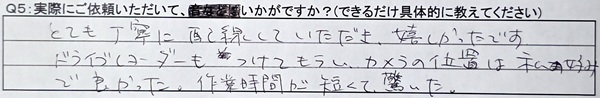 Q5:実際にご依頼いただいて、いかがですか?(できるだけ具体的に教えてください)
とても丁寧に配線していただき、嬉しかったです
ドライブレコーダーもつけてもらい、カメラの位置は私好み
で良かった。作業時間が短くて驚いた。